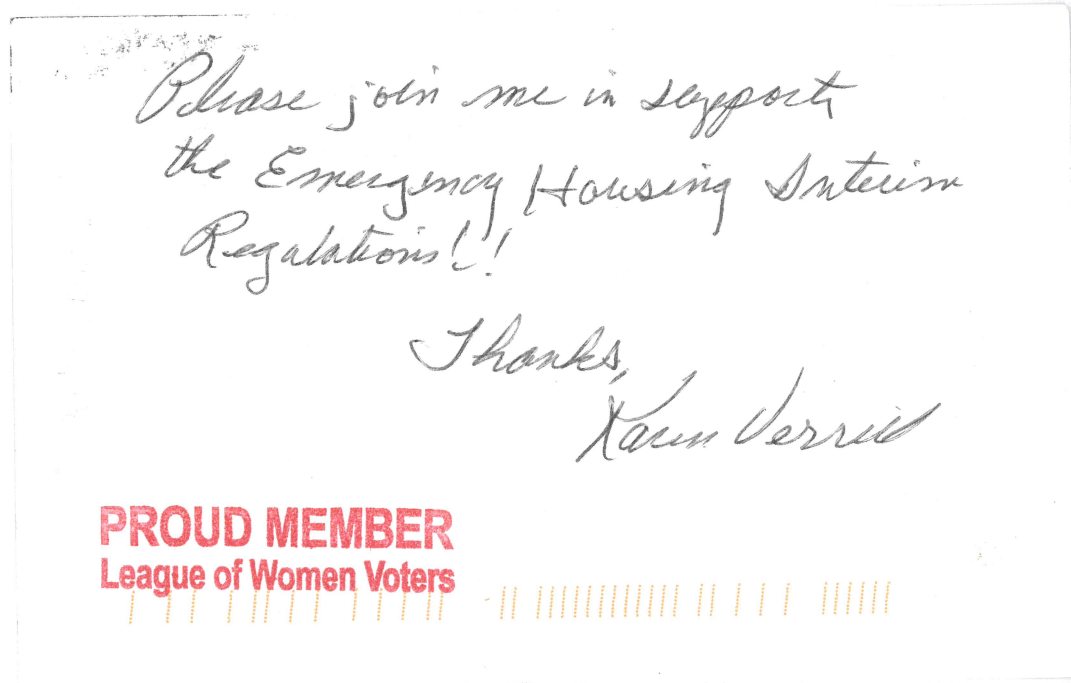 Please join me in support
the Emergency Housing Interim
Regulations!!
Thanks,
Karen Verrill
PROUD MEMBER
League of Women Voters